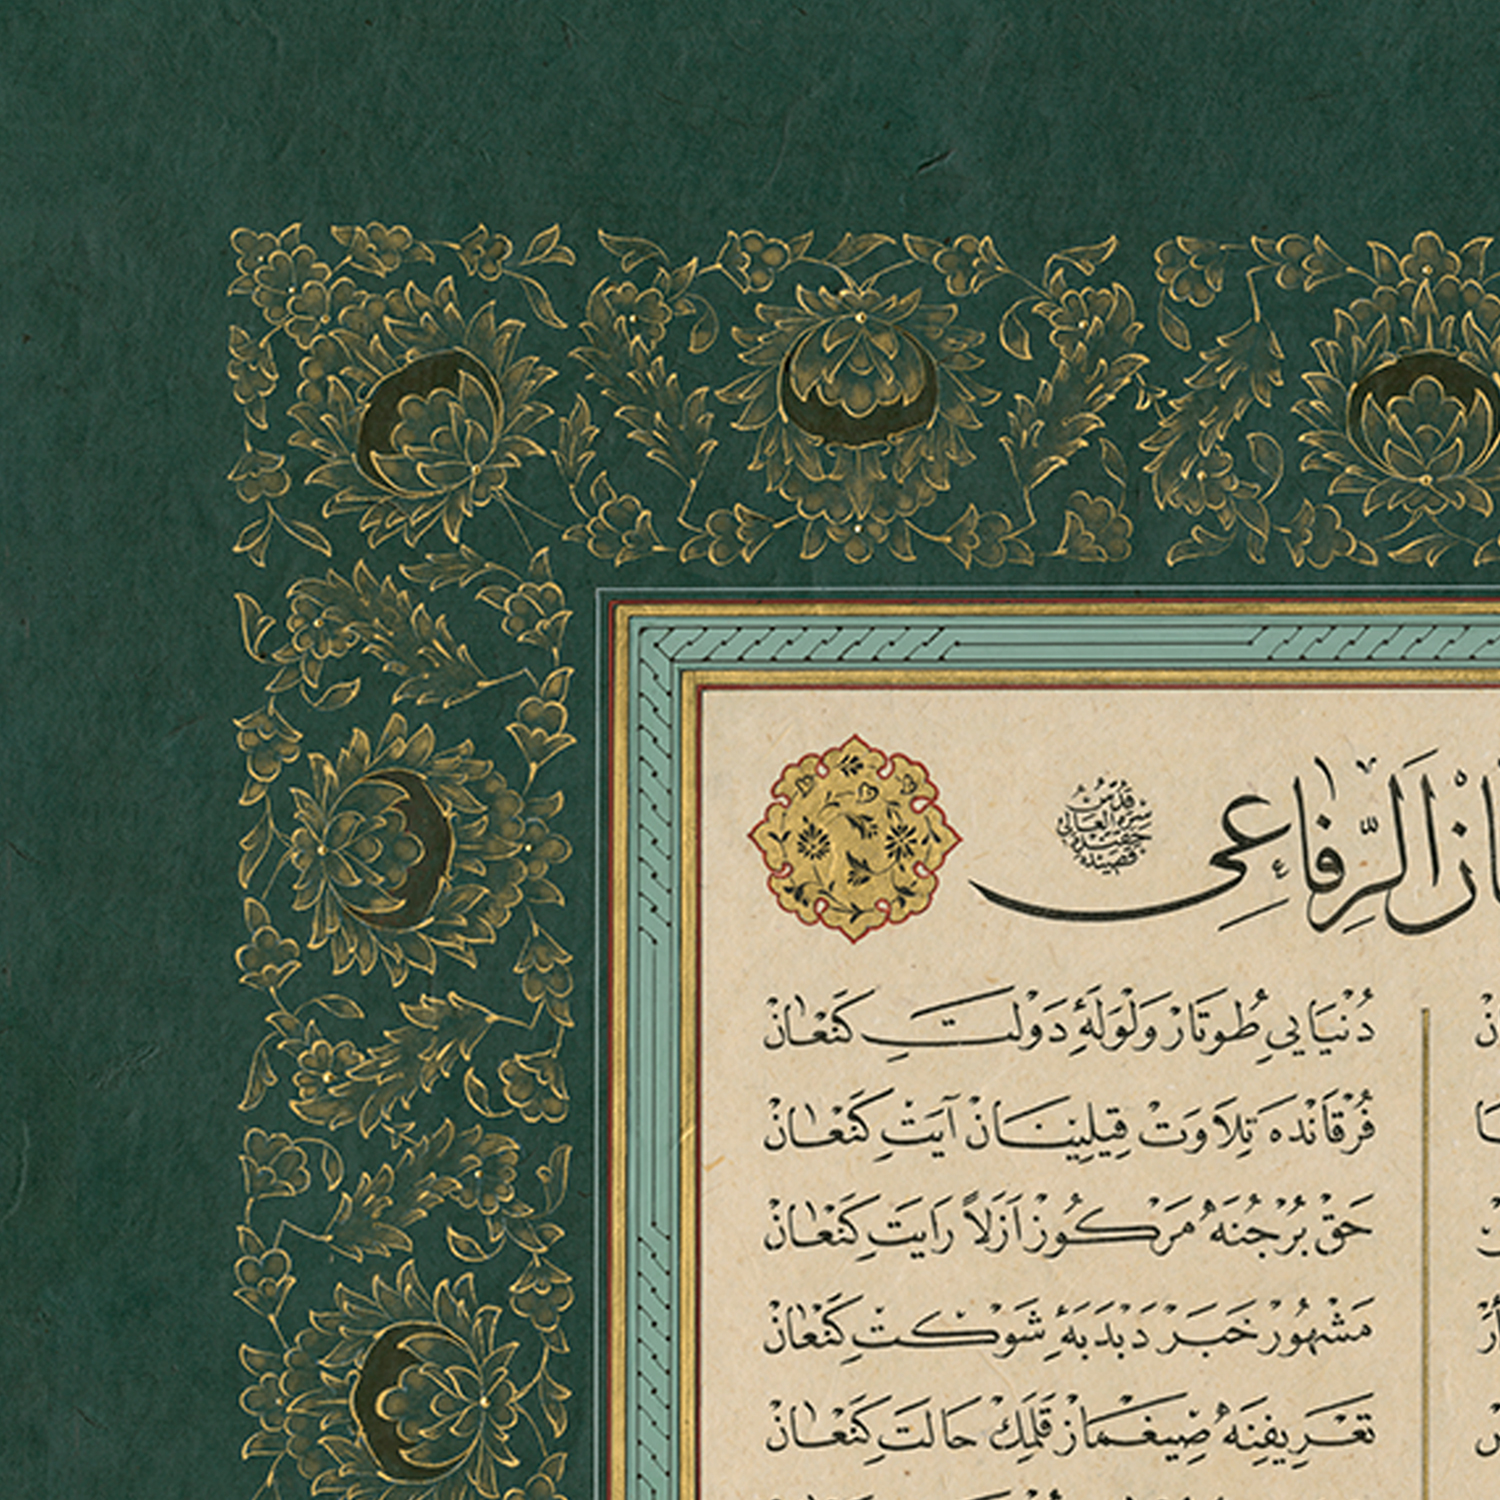 الرِّفَاعِى
قُدِّسَ
سِرُّهُ العَالِى
دُنْيَايِى طُوتَارْ وَلْوَلَهٔ دَوْلَتِ كَنْعَانْ
فُرْقَانْدَه تِلَاوَتْ قِيلِينَانْ آيَتِ كَنْعَانْ
حَقْ بُرْجُنَهْ مَرْكُوزْ اَزَلاً رَايَتِ كَنْعَانْ
مَشْهُورْ خَبَرْ دَبْدَبَهٔ شَوْكَتِ كَنْعَانْ
تَعْرِيفِنَهْ صِيغْمَازْ قَلَمِكْ حَالَتِ كَنْعَانْ